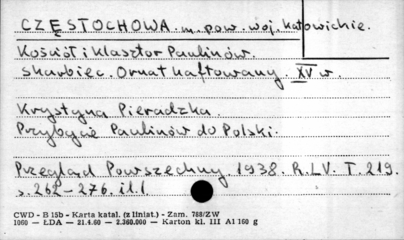 CZĘSTOCHOWA. m. pow. woj. katowickie.
Kościół i klasztor Paulinów.
Skarbiec. Ornat haftowany. XV w.
Krystyna Pieradzka.
Przybycie Paulinów do Polski.
Przegląd Powszechny. 1938. R. LV. T. 219.
s. 262 - 276. il. 1
CWD - B 15b - Karta katal. (z liniat.) - Zam. 788/ZW
1060 — ŁDA — 21.4.60 — 2.360.000 — Karton kl. III A1 160 g